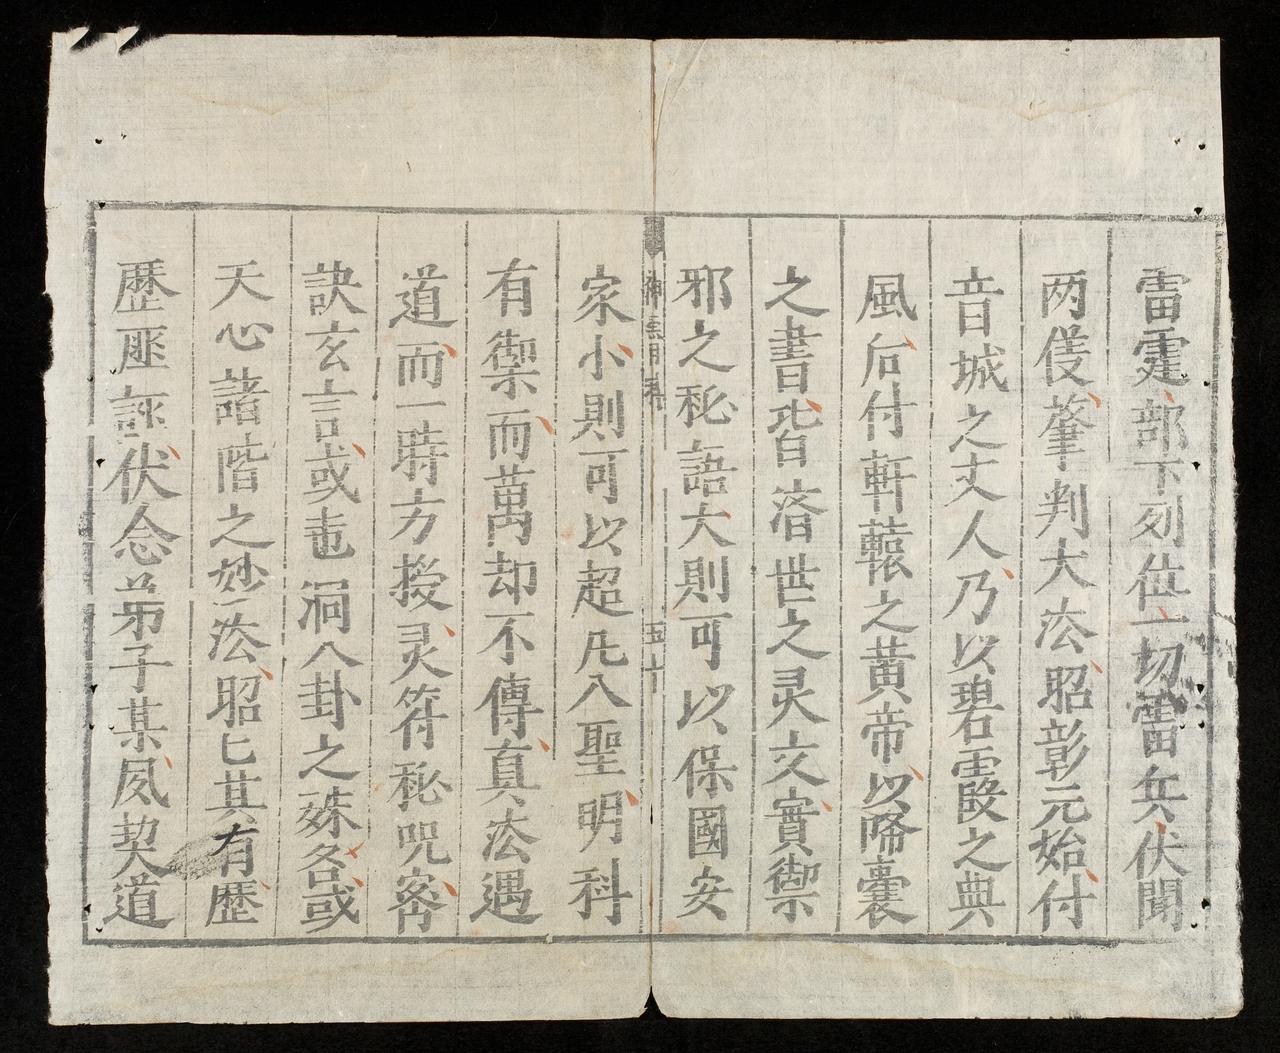 雷霆部下列位一切雷兵伏聞
两儀肇判大㳒昭彰元始付
音城之丈人乃以碧霞之典
風后付軒轅之黃帝以啼囊
之書皆洛世之灵文實禦
邪之秘語大則可以保國安
神 用 五十
家小則可以超凡入聖明科
有禦而萬却不傳真㳒遇
道而一時方授灵符秘咒密
訣玄言或 洞八卦之 各或
天心諸階之妙㳒昭匕其有歷
歷 伏念弟子某夙契道